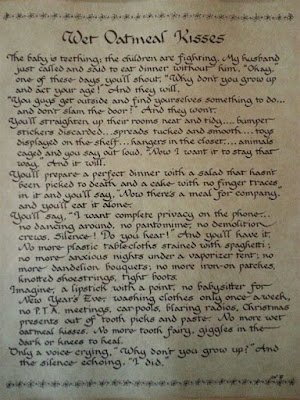 Wet Oatmeal Kisses
The baby is teething; the children are fighting. My husband
just called and said to eat dinner without him. "Okay,
one of these days you'll shout, "Why don't you grow up
and act your age!" And they will.
"You guys get outside and find yourselves something to do...
and don't slam the door!" And they won't.
You'll straighten up their rooms neat and tidy....bumper
stickers discarded...spreads tucked and smooth....toys
displayed on the shelf...hangers in the closet....animals
caged and you say out loud, "Now I want it to stay that
way. And it will.
You'll prepare a perfect dinner with a salad that hasn't
been picked to death and a cake with no finger traces
in it and you'll say, Now there's a meal for company,
and you'll eat it alone.
You'll say, "I want complete privacy on the phone...
no dancing around, no pantomime; no demolition
crews. Silence! Do you hear! And you'll have it.
No more plastic tablecloths stained with spaghetti;
no more anxious nights under a vaporizer tent; no
more dandelion bouquets; no more iron-on patches,
knotted shoestrings, tight boots.
Imagine, a lipstick with a point, no babysitter for
New Year's Eve; washing clothes only once a week,
no P.T.A. meetings, carpools, blaring radios, Christmas
presents out of tooth picks and paste. No more wet
oatmeal kisses. No more tooth fairy, giggles in the
dark or knees to heal.
Only a voice crying, "Why don't you grow up?" And
the silence echoing, "I did."